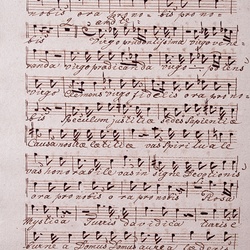 nobis ora pro no- bis pro no
bis Virgo prudentissima virgo vene
randa virgo prædicanda virgo potens
virgo clemens virgo fidelis ora pro no
bis Speculum justitiæ Sedes Sapientiæ
Causa nostræ lætitiæ vas Spirituale
vas honorabile vas insigne Devotionis
ora pro nobis ora pro nobis Rosa
Mystica Turris Davidica turris
eburnea Domus Domus aurea